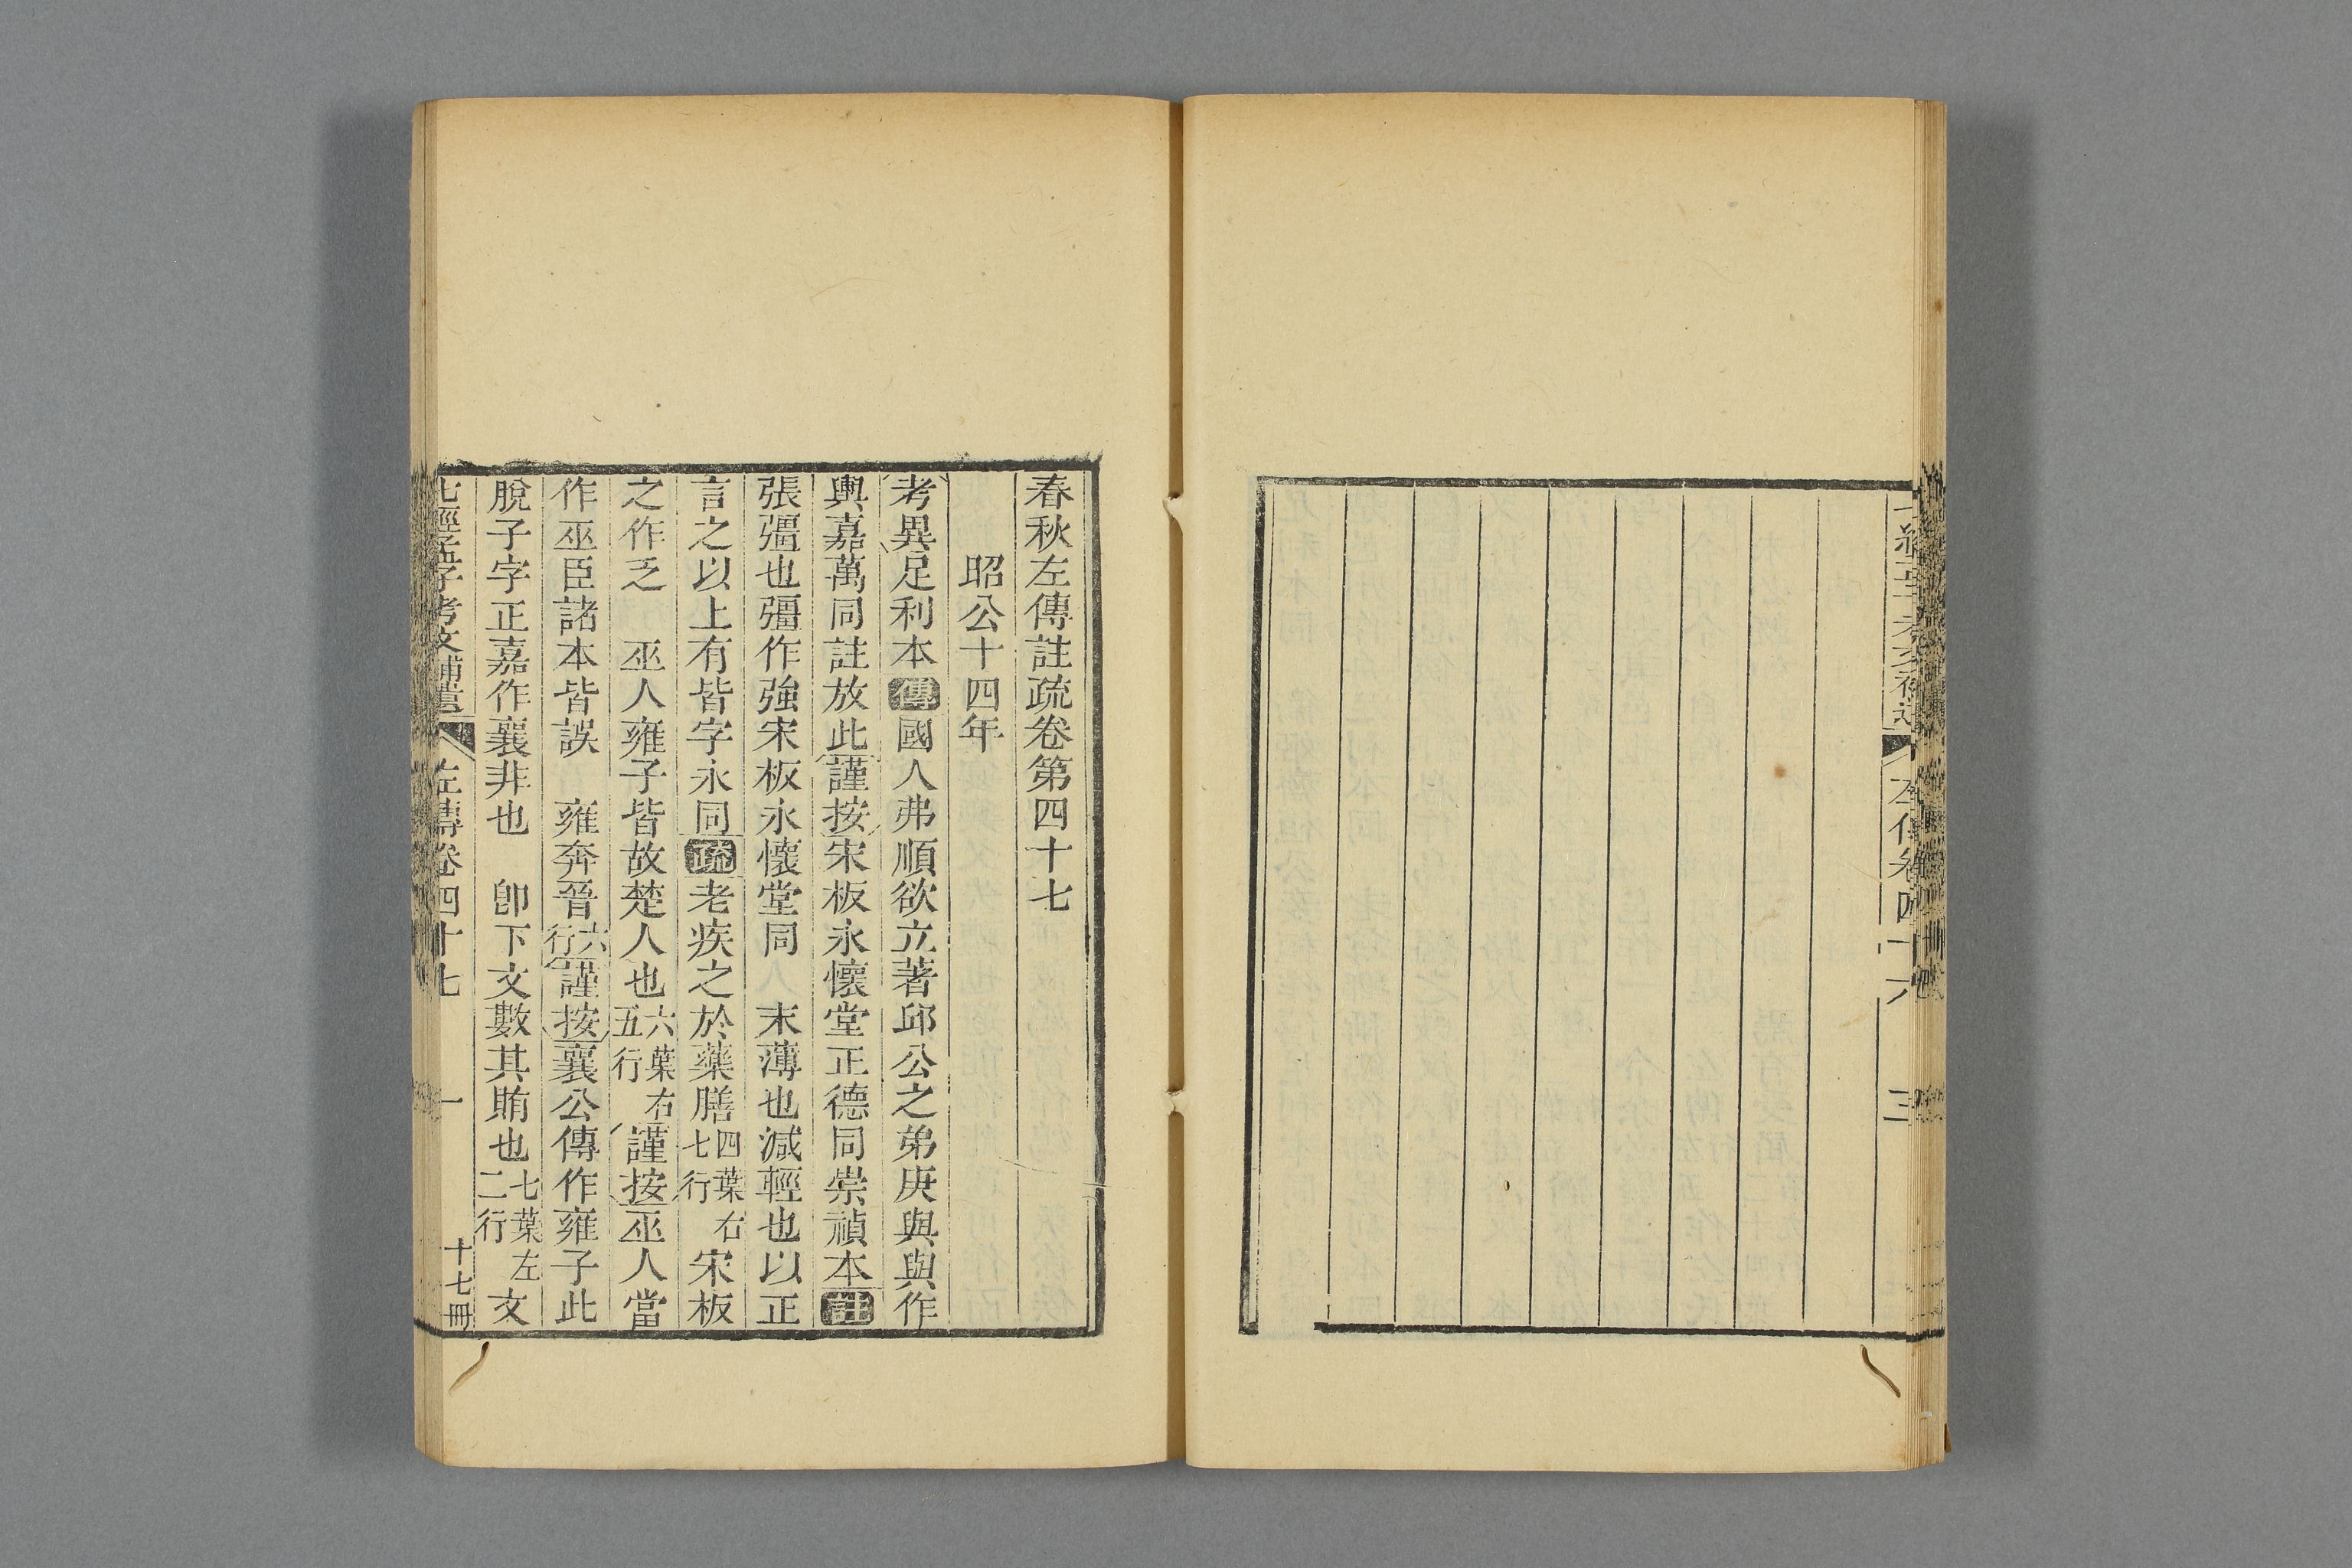 春秋左傳註疏卷第四十七
昭公十四年
考異足利本傳國人弗順欲立著邱公之弟庚與與作
輿嘉萬同註放此謹按宋板永懷堂正德同崇禎本註
張彊也彊作強宋板永懷堂同 末薄也減輕也以正
言之以上有皆字永同疏老疾之於藥膳四葉右七行宋板
之作乏 巫人雍子皆故楚人也六葉右五行謹按巫人當
作巫臣諸本皆誤 雍奔晉六行謹按襄公傳作雍子此
脫子字正嘉作襄非也 卽下文數其賄也七葉左二行文
七經孟子考文補遺 左傳卷四十七 一 十七冊
左傳卷四十六 三